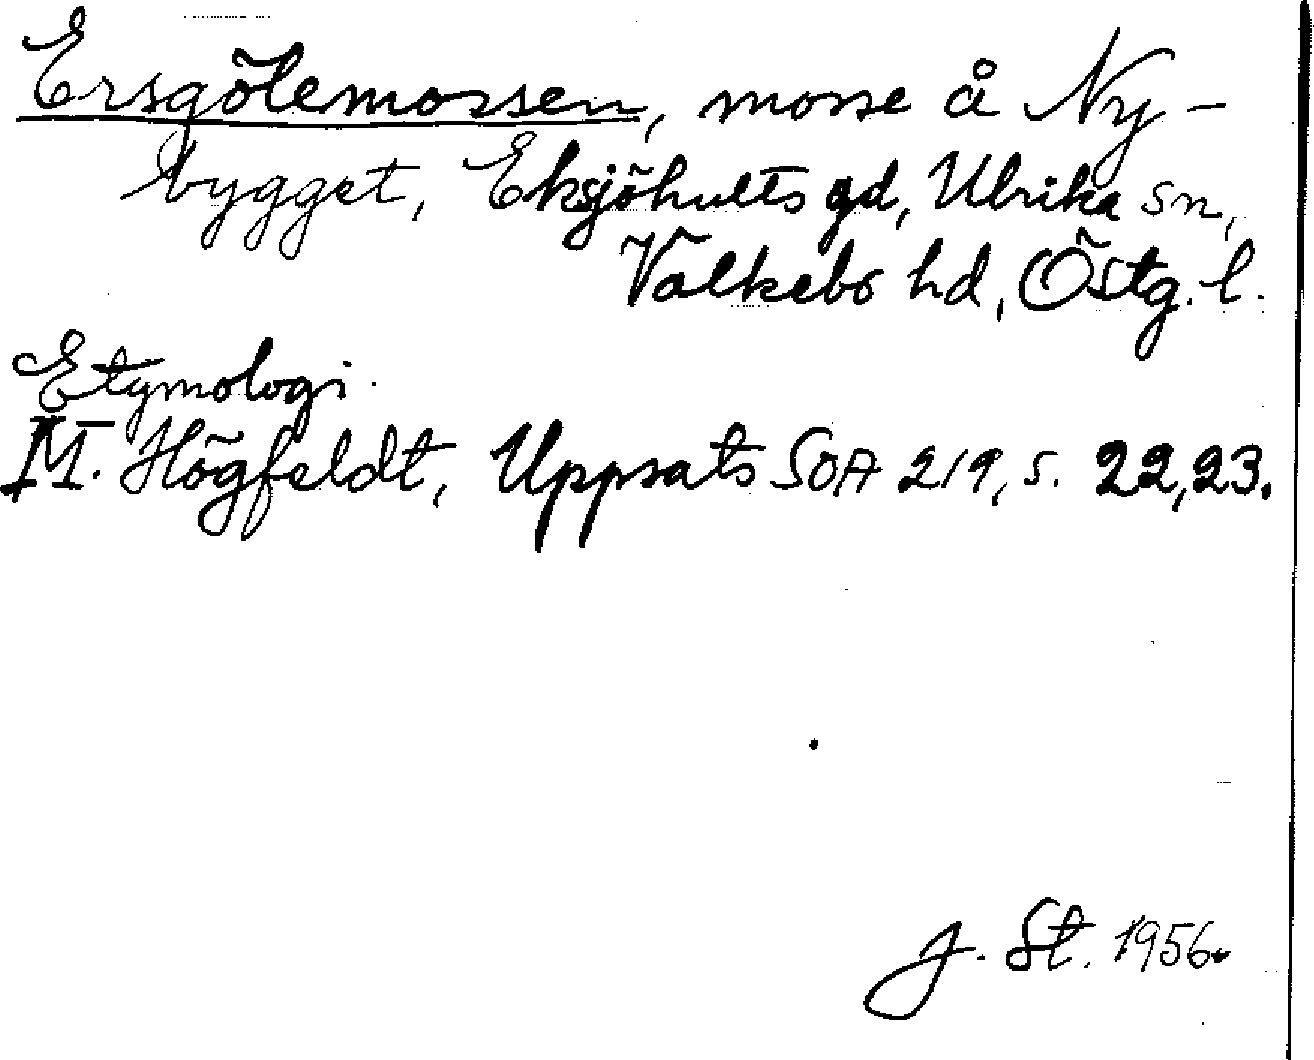 Ersgölemossen, mosse å Ny-
bygget, Eksjöhults gd, Ulrika sn,
Valkebo hd, Östg. l.
Etymologi.
M. Högfeldt, Uppsats SOA 219, s. 22,23.
J. St. 1956.